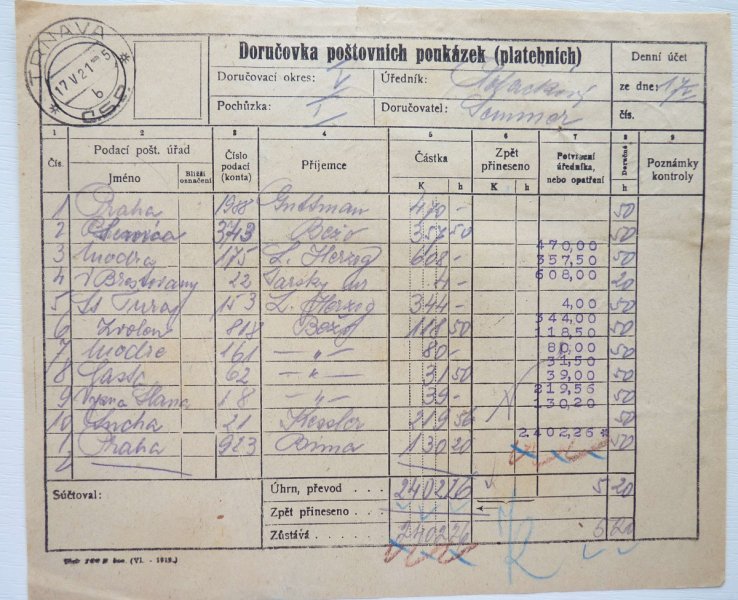 TRNAVA
17.V.21-5
b
* Č.S.P. *
Doručovka poštovních poukázek (platebních)
Denní účet
Doručovací okres: V
Úředník:
ze dne: 17/V
Pochůzka:
Doručovatel: Sommer
čís.
1 2 3 4 5 6 7 8 9
Čís. Podací pošt. úřad Číslo podací (konta) Příjemce Částka Zpět přineseno Potvrzení úředníka, nebo opatření Doručné Poznámky kontroly
Jméno Bližší označení K h K h h
1 Praha 1988 Guttman 470 - 50
2 373 Bežo 357 50 470,00 50
3 Modra 175 L. Herzog 608 - 357,50 50
608,00
4 V Brestovany 22 4 - 20
4,00
5 Sv Turag 153 L. Herzog 344 - 344,00 50
6 Zvolen 818 Bežo 118 50 118,50 50
7 Modre 161 - " - 80 - 80,00 50
31,50
8 62 - " - 31 50 39,00 50
219,56
9 18 - " - 39 - 130,20 50
10 Sucha 21 Kessler 219 56 50
2.402,26 *
1 Praha 923 130 20 50
2
Súčtoval:
Úhrn, převod . . . . 2402 26 5 20
Zpět přineseno . . .
Zůstává . . . . 2402 26 5 20
(VI. - 1919.)